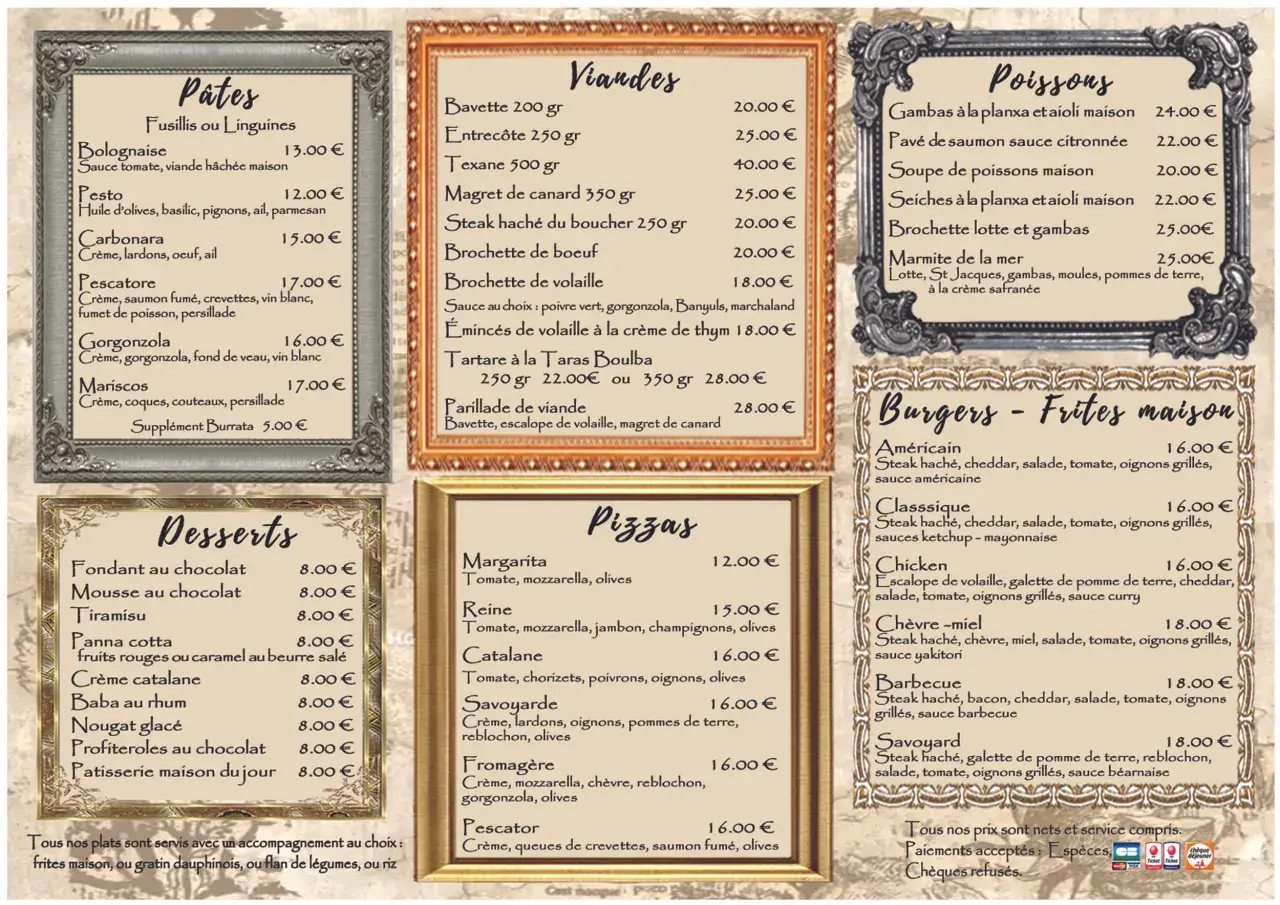 Pâtes
Fusillis ou Linguines
Bolognaise 13.00 €
Sauce tomate, viande hâchée maison
Pesto 12.00 €
Huile d'olives, basilic, pignons, ail, parmesan
Carbonara 15.00 €
Crème, lardons, oeuf, ail
Pescatore 17.00 €
Crème, saumon fumé, crevettes, vin blanc,
fumet de poisson, persillade
Gorgonzola 16.00 €
Crème, gorgonzola, fond de veau, vin blanc
Mariscos 17.00 €
Crème, coques, couteaux, persillade
Supplément Burrata 5.00 €
Desserts
Fondant au chocolat 8.00 €
Mousse au chocolat 8.00 €
Tiramisu 8.00 €
Panna cotta 8.00 €
fruits rouges ou caramel au beurre salé
Crème catalane 8.00 €
Baba au rhum 8.00 €
Nougat glacé 8.00 €
Profiteroles au chocolat 8.00 €
Patisserie maison du jour 8.00 €
Tous nos plats sont servis avec un accompagnement au choix :
frites maison, ou gratin dauphinois, ou flan de légumes, ou riz
Viandes
Bavette 200 gr 20.00 €
Entrecôte 250 gr 25.00 €
Texane 500 gr 40.00 €
Magret de canard 350 gr 25.00 €
Steak haché du boucher 250 gr 20.00 €
Brochette de boeuf 20.00 €
Brochette de volaille 18.00 €
Sauce au choix : poivre vert, gorgonzola, Banyuls, marchaland
Émincés de volaille à la crème de thym 18.00 €
Tartare à la Taras Boulba
250 gr 22.00€ ou 350 gr 28.00 €
Parillade de viande 28.00 €
Bavette, escalope de volaille, magret de canard
Pizzas
Margarita 12.00 €
Tomate, mozzarella, olives
Reine 15.00 €
Tomate, mozzarella, jambon, champignons, olives
Catalane 16.00 €
Tomate, chorizets, poivrons, oignons, olives
Savoyarde 16.00 €
Crème, lardons, oignons, pommes de terre,
reblochon, olives
Fromagère 16.00 €
Crème, mozzarella, chèvre, reblochon,
gorgonzola, olives
Pescator 16.00 €
Crème, queues de crevettes, saumon fumé, olives
Poissons
Gambas à la planxa et aioli maison 24.00 €
Pavé de saumon sauce citronnée 22.00 €
Soupe de poissons maison 20.00 €
Seiches à la planxa et aioli maison 22.00 €
Brochette lotte et gambas 25.00€
Marmite de la mer 25.00€
Lotte, St Jacques, gambas, moules, pommes de terre,
à la crème safranée
Burgers - Frites maison
Américain 16.00 €
Steak haché, cheddar, salade, tomate, oignons grillés,
sauce américaine
Classsique 16.00 €
Steak haché, cheddar, salade, tomate, oignons grillés,
sauces ketchup - mayonnaise
Chicken 16.00 €
Escalope de volaille, galette de pomme de terre, cheddar,
salade, tomate, oignons grillés, sauce curry
Chèvre -miel 18.00 €
Steak haché, chèvre, miel, salade, tomate, oignons grillés,
sauce yakitori
Barbecue 18.00 €
Steak haché, bacon, cheddar, salade, tomate, oignons
grillés, sauce barbecue
Savoyard 18.00 €
Steak haché, galette de pomme de terre, reblochon,
salade, tomate, oignons grillés, sauce béarnaise
Tous nos prix sont nets et service compris.
Paiements acceptés : Espèces, CB Ticket Ticket chèque déjeuner
Chèques refusés.